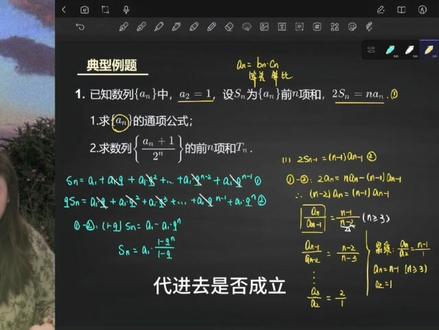 典型例题
aₙ = bₙ·cₙ
等差 等比
1. 已知数列{aₙ}中，a₂ = 1，设Sₙ为{aₙ}前n项和，2Sₙ = naₙ. ①
1.求{aₙ}的通项公式；
2.求数列{(aₙ + 1)/2ⁿ}的前n项和Tₙ.
Sₙ = a₁ + a₁q + a₁q² + … + a₁qⁿ⁻² + a₁qⁿ⁻¹ ①
qSₙ = a₁q + a₁q² + a₁q³ + … + a₁qⁿ⁻¹ + a₁qⁿ ②
①-②: (1-q)Sₙ = a₁ - a₁·qⁿ
Sₙ = a₁·(1-qⁿ)/(1-q)
(1) 2Sₙ₋₁ = (n-1)aₙ₋₁ ②
①-②: 2aₙ = naₙ - (n-1)aₙ₋₁
∴ (n-2)aₙ = (n-1)aₙ₋₁
aₙ/aₙ₋₁ = (n-1)/(n-2) (n≥3)
aₙ₋₁/aₙ₋₂ = (n-2)/(n-3)
⋮
a₃/a₂ = 2/1
累乘: aₙ/a₂ = (n-1)/1
aₙ = n-1 (n≥3)
a₂ = 1
代进去是否成立